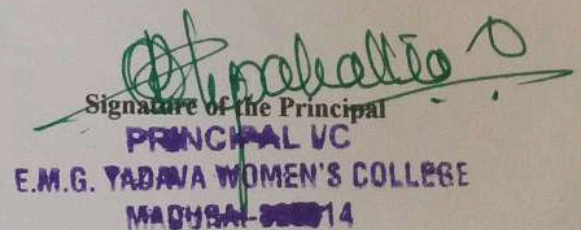 Signature of the Principal
PRINCIPAL I/C
E.M.G. YADAVA WOMEN'S COLLEGE
MADURAI- 14